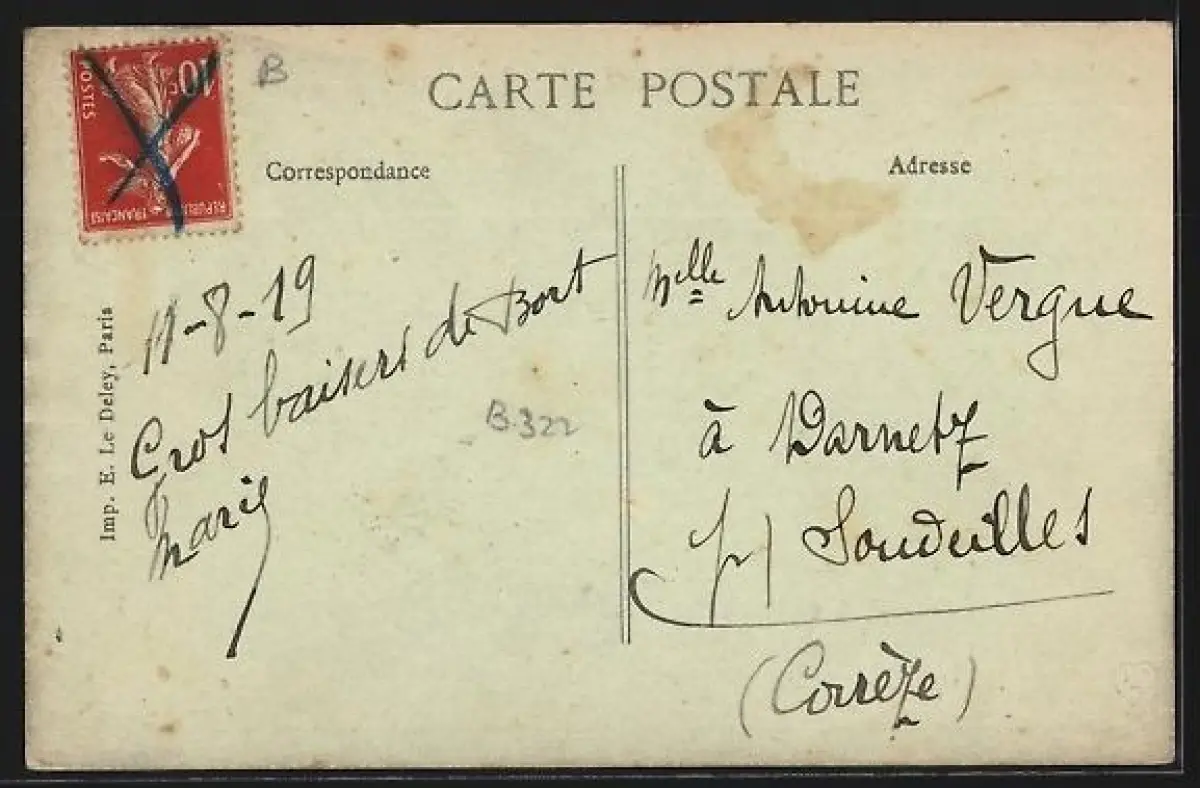 10c
POSTES
REPUBLIQUE FRANÇAISE
B
CARTE POSTALE
Correspondance
Adresse
11-8-19
Gros baisers de Bort
Marie
B.322
Imp. E. Le Deley, Paris
Melle Antonine Vergne
à Darnetz
pr Soudeilles
(Corrèze)